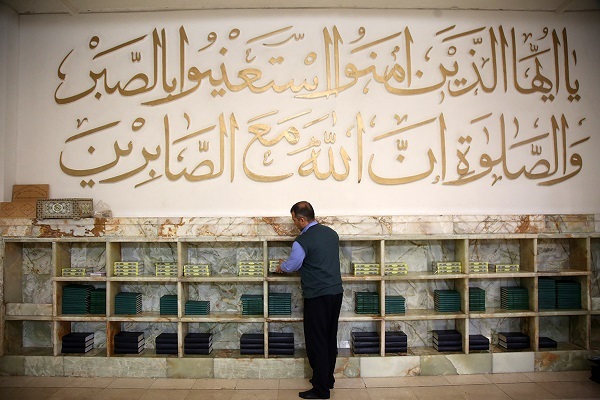 یا ایها الذین امنوا استعینوا بالصبر
والصلوة ان الله مع الصابرین